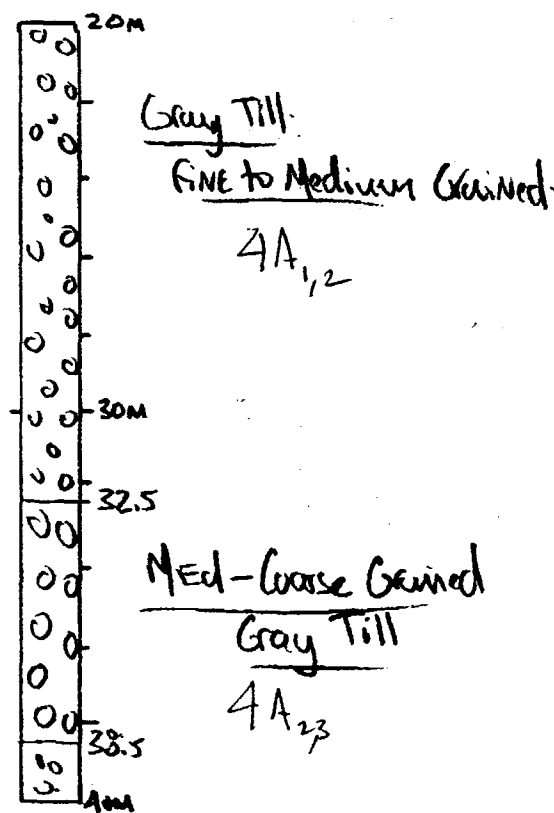 20M
Gray Till.
FINE to Medium Grained.
4A1,2
30M
32.5
MEd-Coarse Grained
Gray Till
4A2,3
38.5
40M